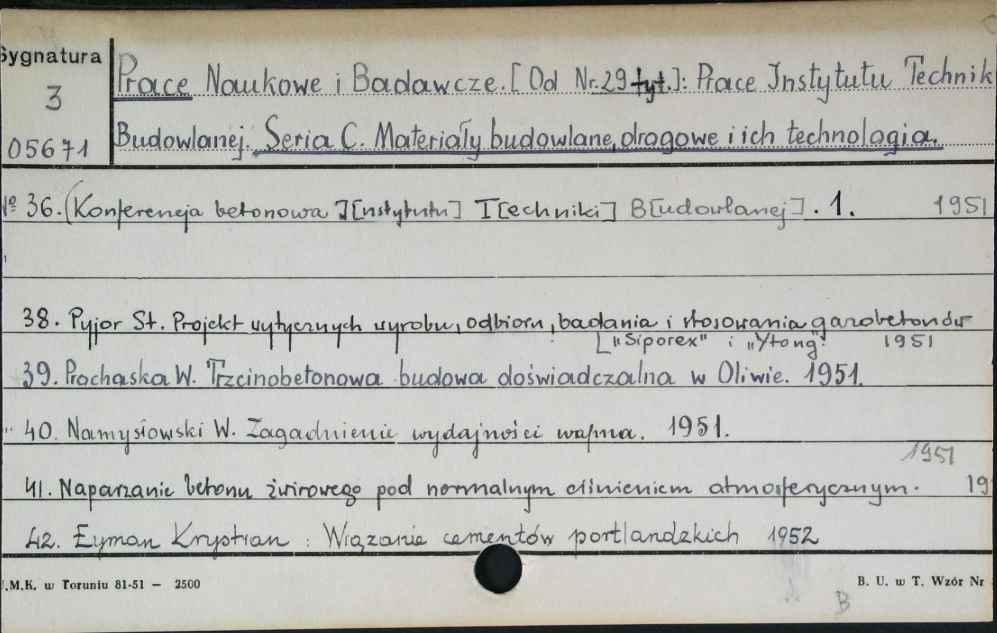 Sygnatura
3
05671
Prace Naukowe i Badawcze. [Od Nr. 29 tyt.]: Prace Instytutu Technik
Budowlanej. Seria C. Materiały budowlane, drogowe i ich technologia.
№ 36. (Konferencja betonowa I[nstytutu] T[echniki] B[udowlanej]. 1. 1951
38. Pyjor St. Projekt wytycznych wyrobu, odbioru, badania i stosowania gazobetonów
["Siporex" i "Ytong". 1951
39. Prochaska W. Trzcinobetonowa budowa doświadczalna w Oliwie. 1951.
40. Namysłowski W. Zagadnienie wydajności wapna. 1951.
1951
41. Naparzanie betonu żwirowego pod normalnym ciśnieniem atmosferycznym. 19
42. Eyman Krystian: Wiązanie cementów portlandzkich 1952
U.M.K. w Toruniu 81-51 — 2500
B. U. w T. Wzór Nr
B